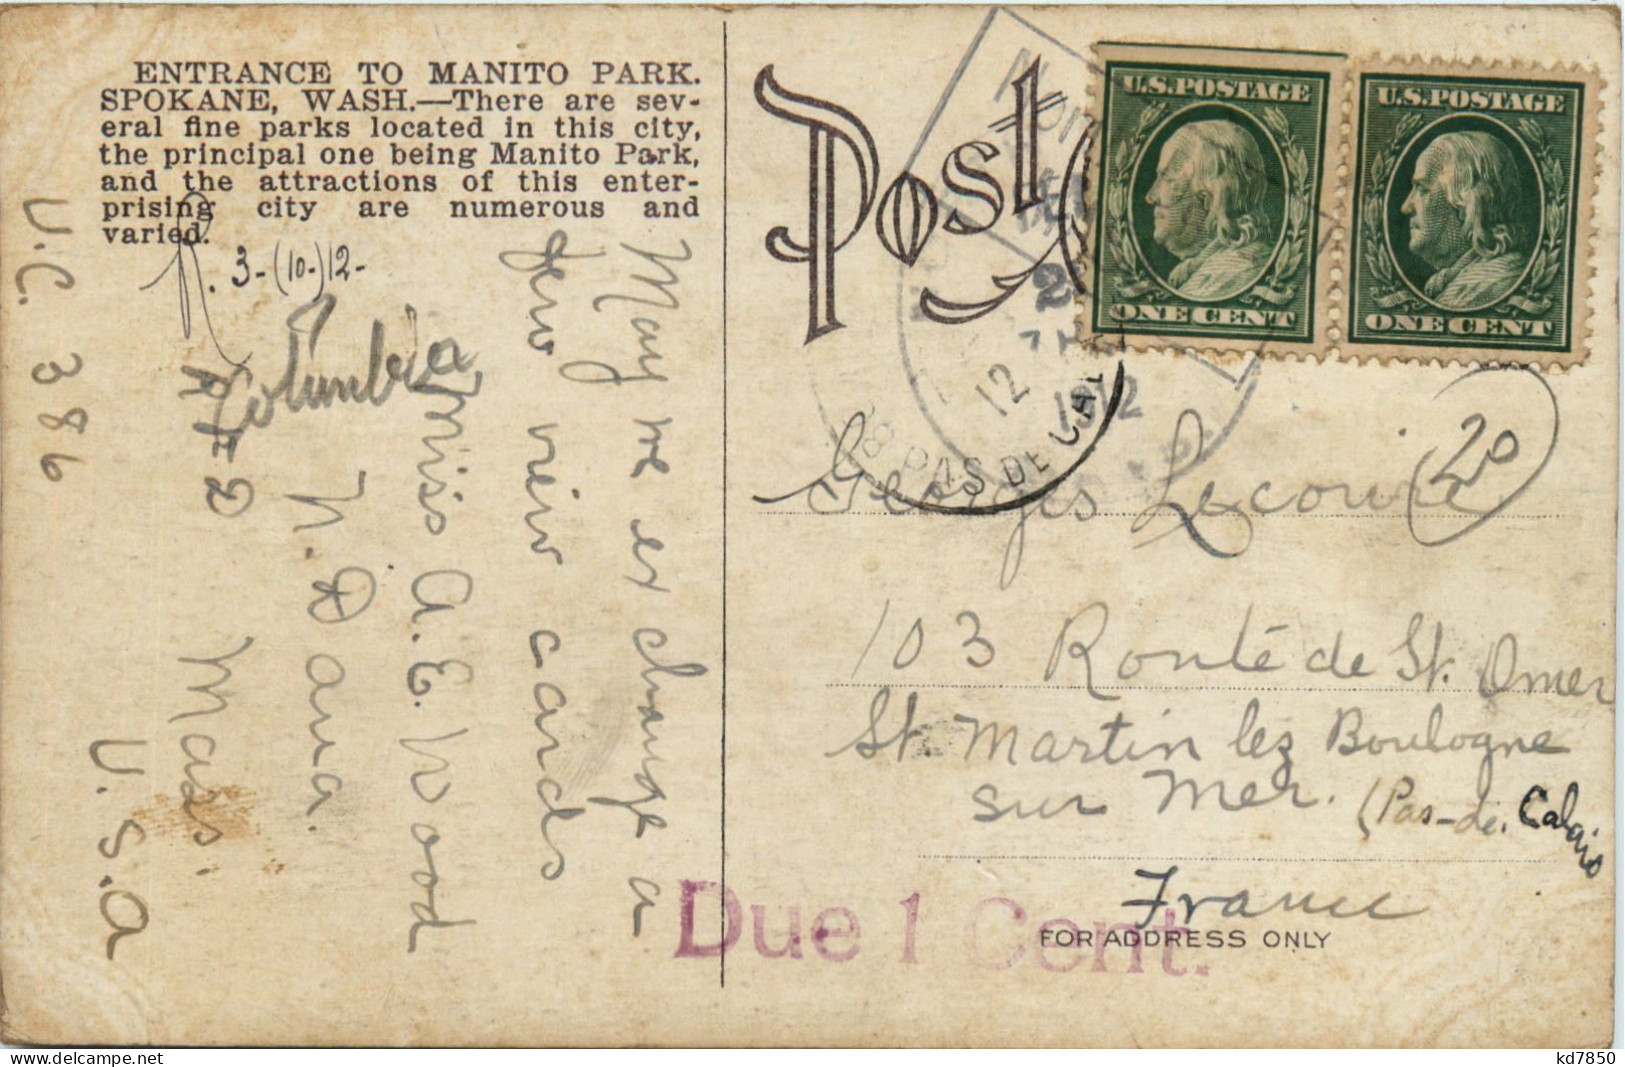 ENTRANCE TO MANITO PARK.
SPOKANE, WASH.—There are sev-
eral fine parks located in this city,
the principal one being Manito Park,
and the attractions of this enter-
prising city are numerous and
varied.
R. 3-(10-)12-
May we exchange a
few view cards
Columbia
Miss A. E. Wood
N. Dana.
Mass.
U.S.A
U.C. 386
Post
U.S.POSTAGE
ONE CENT
U.S.POSTAGE
ONE CENT
2
12
1912
PAS DE CALAIS
20
Georges Lecoutre
103 Route de St. Omer
St. Martin lez Boulogne
sur Mer. (Pas-de. Calais
France
Due 1 Cent.
FOR ADDRESS ONLY
kd7850